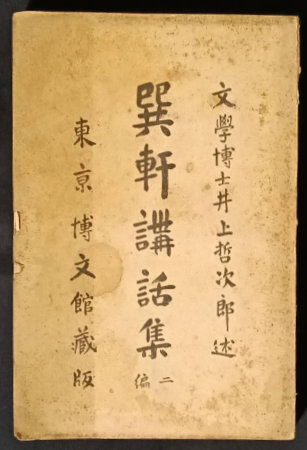 文學博士井上哲次郎述
巽軒講話集
二編
東京博文館藏版